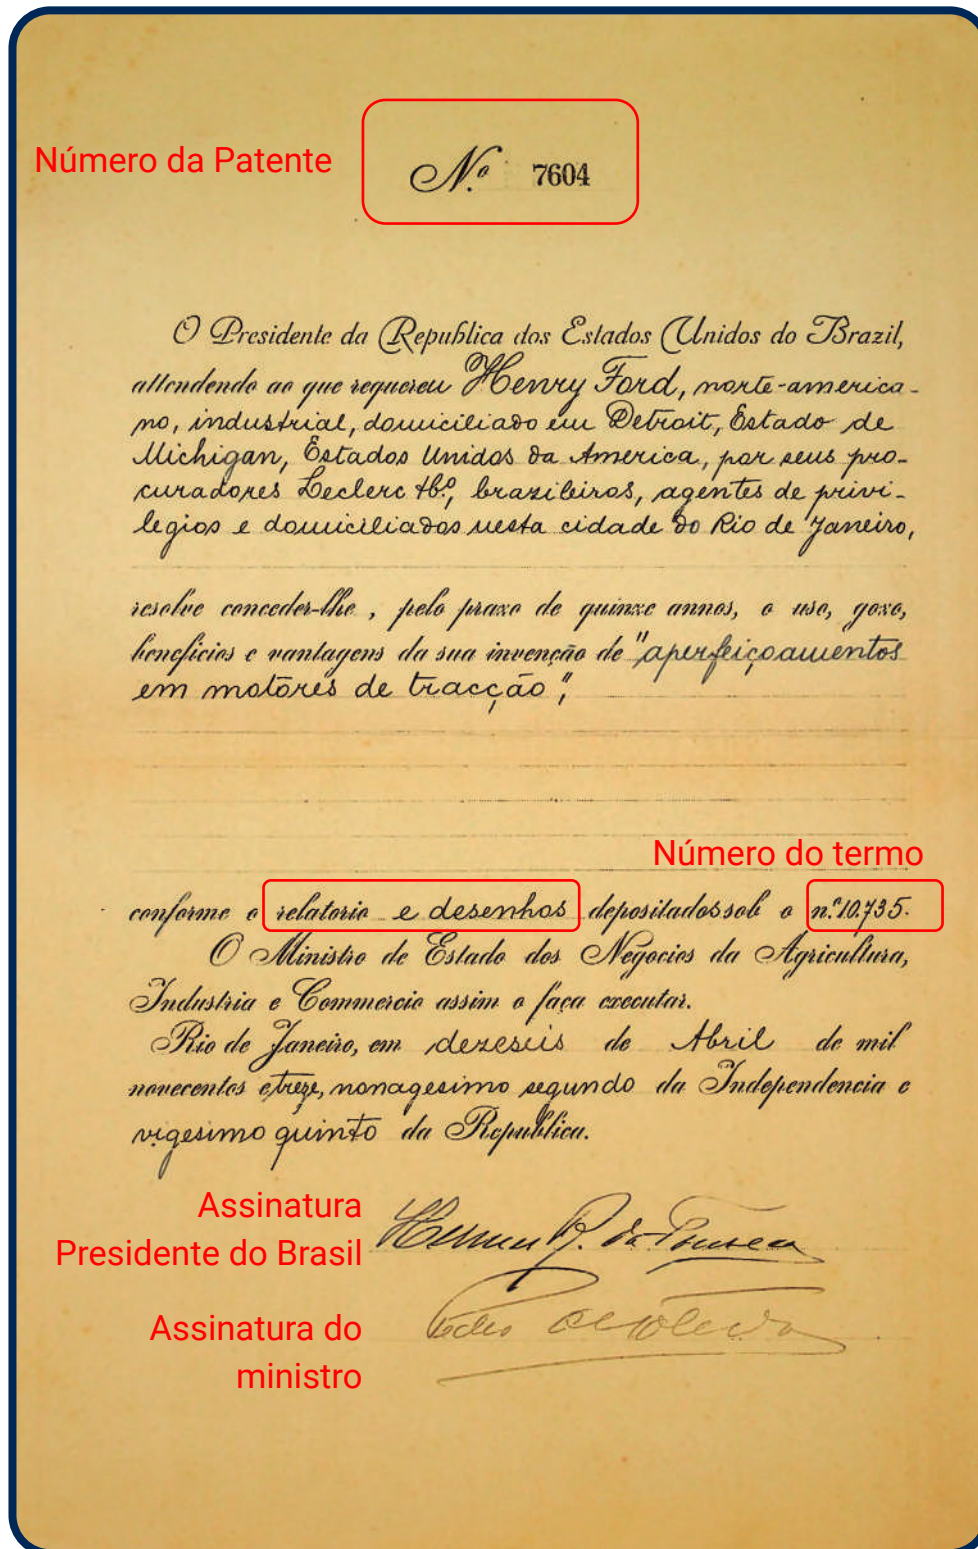 Número da Patente
Nº 7604
O Presidente da Republica dos Estados Unidos do Brazil,
attendendo ao que requereu Henry Ford, norte-america-
no, industrial, domiciliado em Detroit, Estado de
Michigan, Estados Unidos da America, por seus pro-
curadores Leclerc & Cº, brazileiros, agentes de privi-
legios e domiciliados nesta cidade do Rio de Janeiro,
resolve conceder-lhe, pelo prazo de quinze annos, o uso, gozo,
beneficios e vantagens da sua invenção de "aperfeiçoamentos
em motôres de tracção",
Número do termo
conforme o relatorio e desenhos depositados sob o n.º 10.735.
O Ministro de Estado dos Negocios da Agricultura,
Industria e Commercio assim o faça executar.
Rio de Janeiro, em dezeseis de Abril de mil
novecentos e treze, nonagesimo segundo da Independencia e
vigesimo quinto da Republica.
Assinatura
Presidente do Brasil
Hermes R. da Fonseca
Assinatura do
ministro
Pedro de Toledo